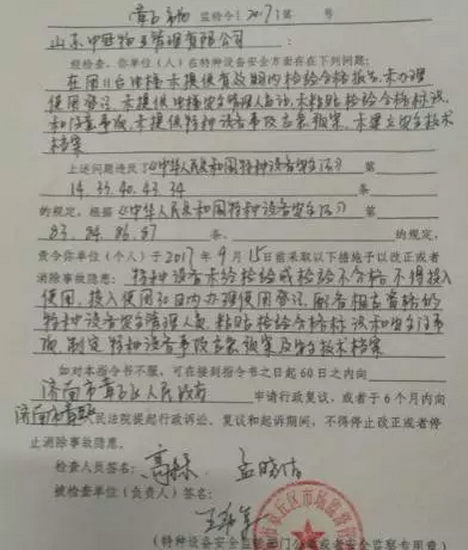 章丘市场 监特令〔2017〕第 号
山东中旺物业管理有限公司：
经检查，你单位（人）在特种设备安全方面存在下列问题：
在用11台电梯未提供有效期内检验合格报告，未办理
使用登记，未提供电梯安全管理人员证，未粘贴检验合格标识
和注意事项，未提供特种设备事故应急预案，未建立安全技术
档案
上述问题违反了《中华人民共和国特种设备安全法》第
14. 33. 40. 43. 34 条
的规定，根据《中华人民共和国特种设备安全法》第
83. 84. 86. 87 条、 的规定，
责令你单位（个人）于2017年9月15日前采取以下措施予以改正或者
消除事故隐患：特种设备未经检验或检验不合格不得投入
使用，投入使用30日内办理使用登记，配备相应资格的
特种设备安全管理人员，粘贴检验合格标识和安全注意事
项，制定特种设备事故应急预案及安全技术档案
如对本指令书不服，可在接到指令书之日起60日之内向
济南市章丘区人民政府 申请行政复议，或者于6个月内向
济南市章丘人民法院提起行政诉讼。复议和起诉期间，不得停止改正或者停
止消除事故隐患。
检查人员签名：
被检查单位（负责人）签名：
丘区市场监督管
（特种设备安全监管部门公章或者安全监察专用章）